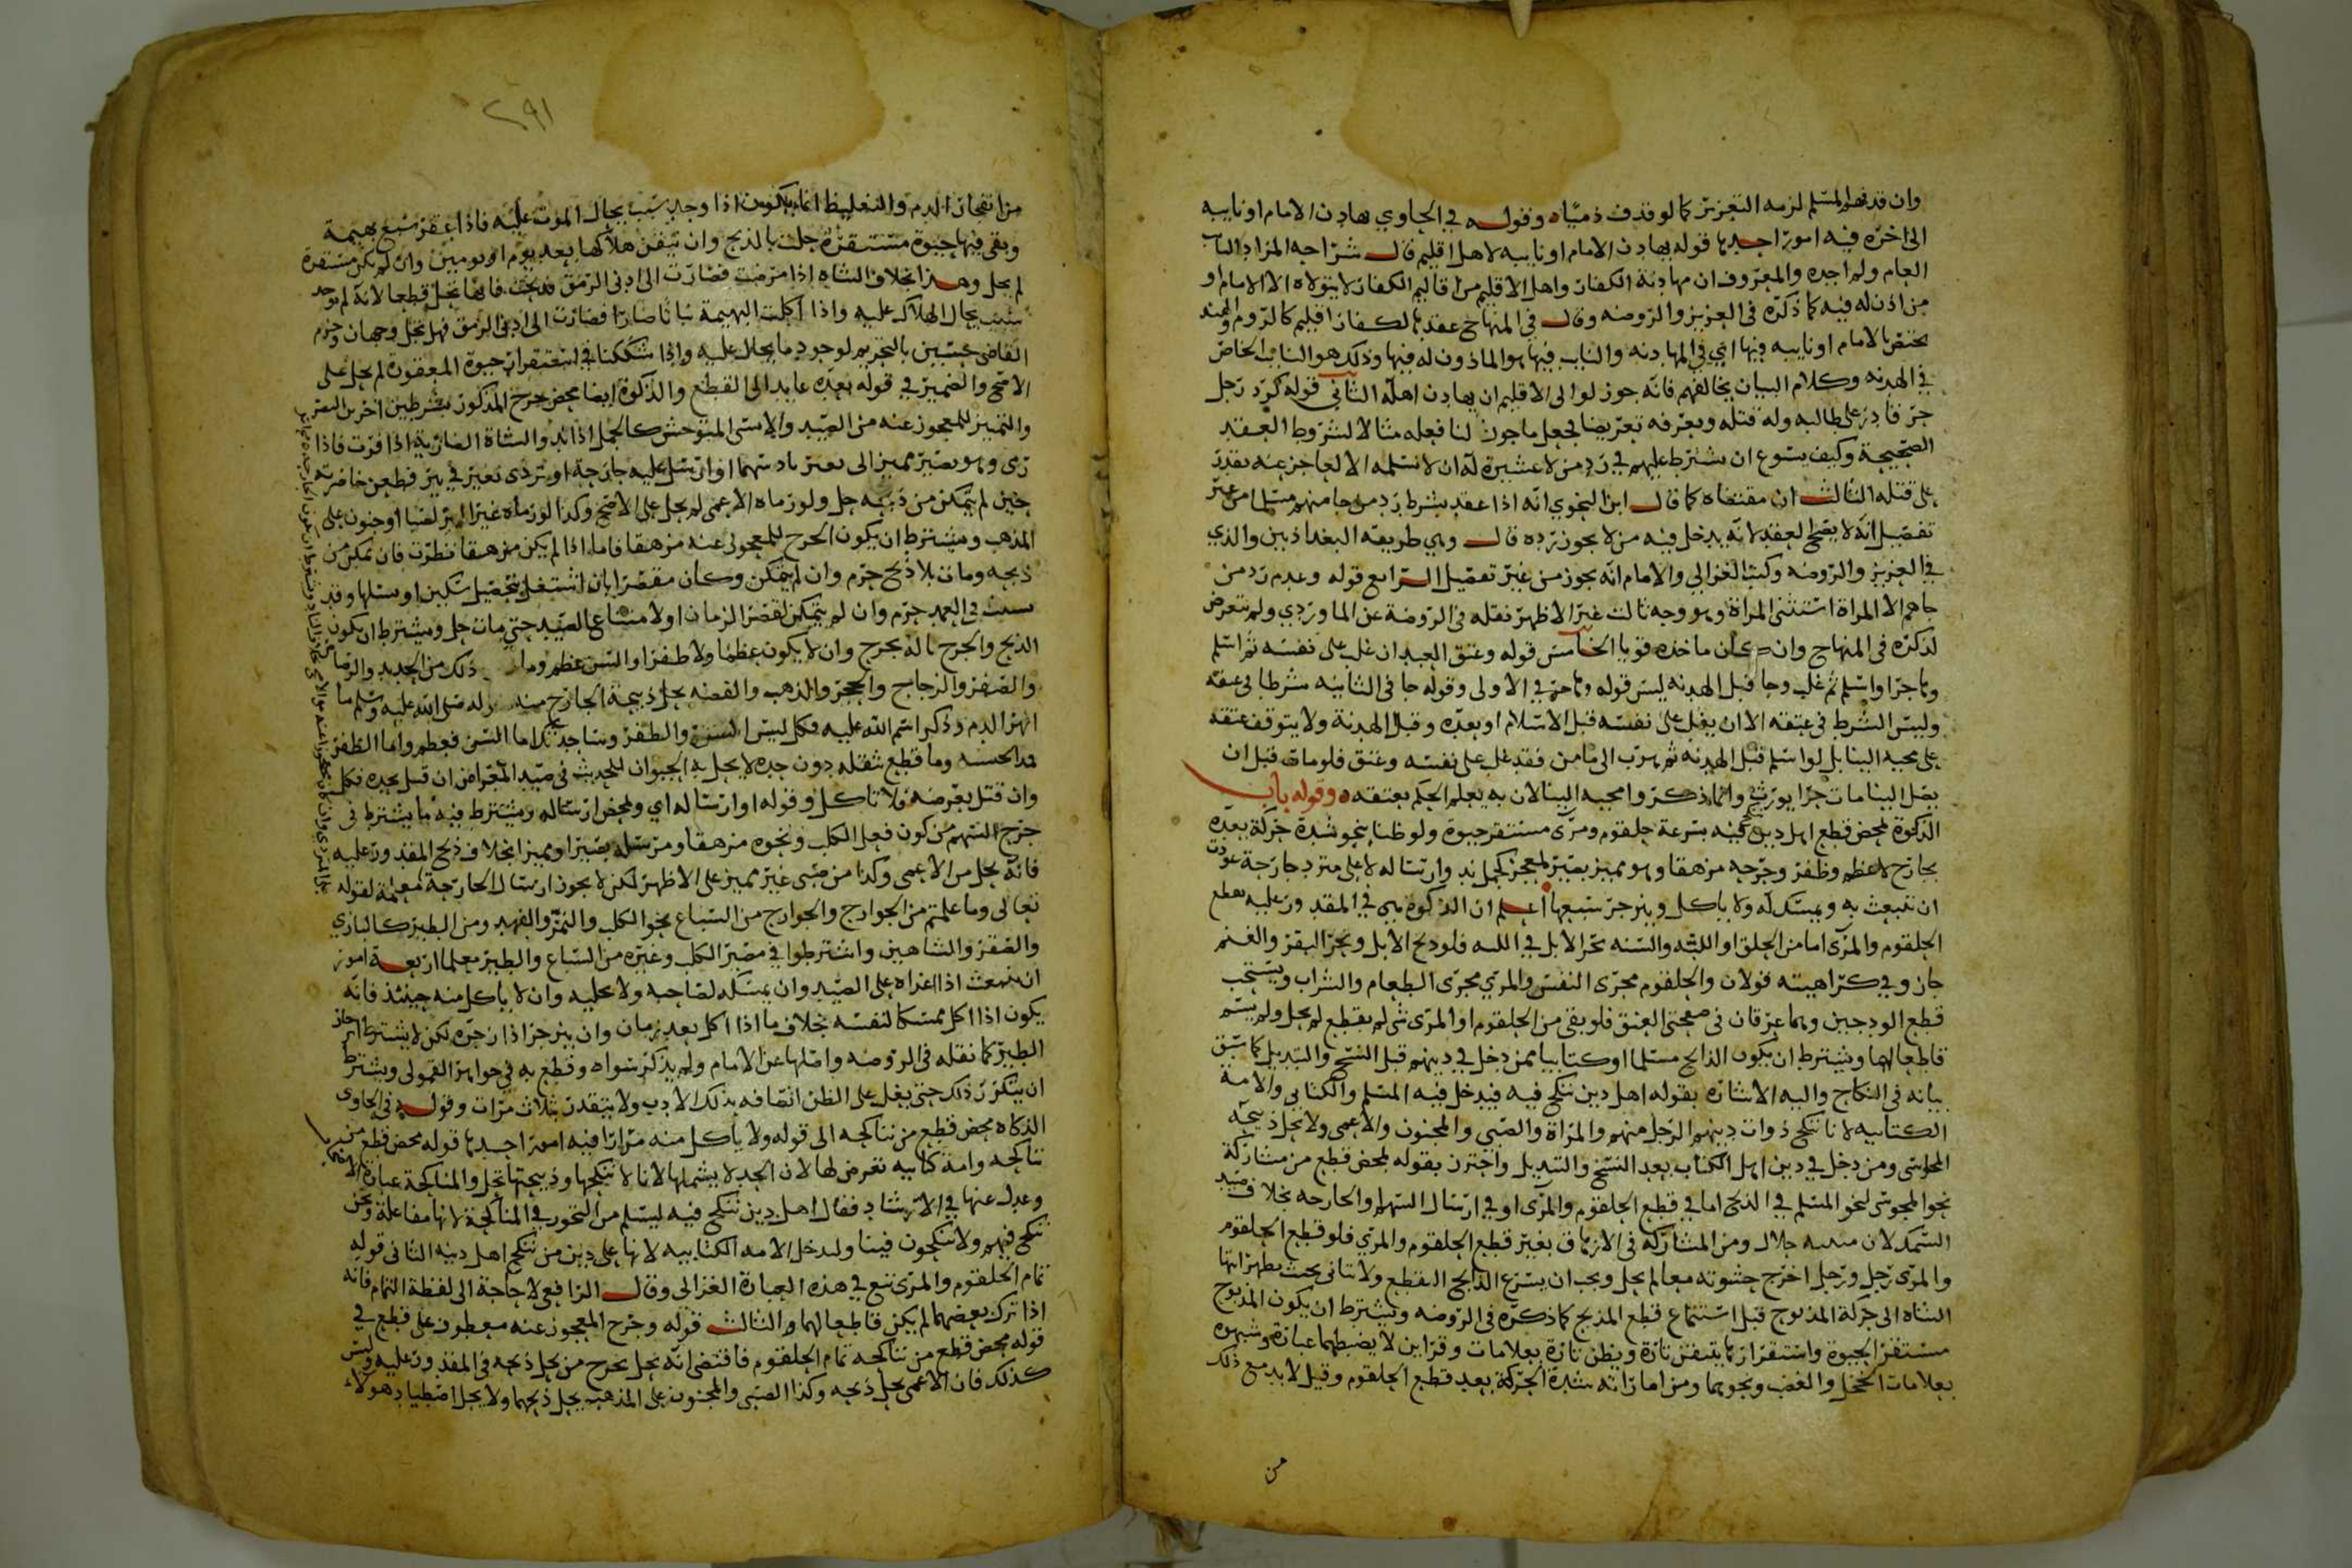 وان قذفه المسلم لزمه التعزير كما لو قذف ذميا ه وقوله في الحاوي يهادن الامام او نايبه
الى اخره فيه امور احدها قوله يهادن الامام او نايبه لاهل اقليم قال شراحه المراد النايب
العام ولم اجده والمعروف ان مهادنة الكفار واهل الاقليم من اقاليم الكفار لا يتولاه الا الامام او
من اذن له فيه كما ذكره في العزيز والروضه وقال في المنهاج عقدها لكفار اقليم كالروم والهند
يختص بالامام او نايبه فيها اي في المهادنه والنايب فيها هو الماذون له فيها وذلك هو النايب الخاص
في الهدنه وكلام البيان يخالفهم فانه جوز لوالي الاقليم ان يهادن اهله الثاني قوله كرد رجل
حر قادر على طالبه وله قتله ويعرفه تعريضا فجعل ما جوز لنا فعله مثالا لشروط العقد
الصحيحة وكيف يسوغ ان يشترط عليهم في رد من لا عشيرة له ان لا نسلمه الا لعاجز عنه يقدر
على قتله الثالث ان مقتضاه كما قال ابن النحوي انه اذا عقد بشرط رد من جا منهم مسلما من غير
تفصيل انه لا يصح العقد لانه يدخل فيه من لا يجوز رده قال وهي طريقه البغداذيين والذي
في العزيز والروضه وكتب الغزالي والامام انه يجوز من غير تفصيل الرابع قوله وعدم رد من
جاهم الا المراة استثنى المراة وهو وجه ثالث غير الاظهر نقله في الروضة عن الماوردي ولم يتعرض
لذكره في المنهاج وان كان ماخذه قويا الخامس قوله وعتق العبد ان غلب على نفسه ثم اسلم
وهاجر او اسلم ثم غلب وجا قبل الهدنه ليس قوله وهاجر في الاولى وقوله جا في الثانيه شرطا في عتقه
وليس الشرط في عتقه الا ان يغلب على نفسه قبل الاسلام او بعده وقبل الهدنة ولا يتوقف عتقه
على مجيه الينا بل لو اسلم قبل الهدنه ثم هرب الى مامن فقد غلب على نفسه وعتق فلو مات قبل ان
يصل الينا مات حرا يورث وانما ذكروا مجيه الينا لان به يعلم الحكم بعتقه ه وقوله باب
الذكوة لمحض قطع اهل دين ننكح فيه بسرعة حلقوم ومري مستقر حيوة ولو ظنا بنحو شدة حركة بعده
بجارح لا عظم وظفر وجرحه مزهقا وهو مميز بصير لمعجز كجمل ند وارساله لا على مترد جارحة عودت
ان تنبعث به ويمسك له ولا ياكل وينزجر سبعها اعلم ان الذكوة هي في المقدور عليه بقطع
الحلقوم والمري اما من الحلق او اللبه والسنه نحر الابل في اللبه فلو ذبح الابل ونحر البقر والغنم
جاز وفي كراهيته قولان والحلقوم مجرى النفس والمري مجرى الطعام والشراب ويستحب
قطع الودجين وهما عرقان في صفحتي العنق فلو بقي من الحلقوم او المري شي لم يقطع لم يحل ولم يسم
قاطعا لهما ويشترط ان يكون الذابح مسلما او كتابيا ممن دخل في دينهم قبل النسخ والتبديل كما سبق
بيانه في النكاح واليه الاشاره بقوله اهل دين ننكح فيه فيدخل فيه المسلم والكتابي والامة
الكتابيه لانا ننكح ذوات دينهم الرجل منهم والمراة والصبي والمجنون والاعمى ولا تحل ذبيحه
المجوسي ومن دخل في دين اهل الكتاب بعد النسخ والتبديل واحترز بقوله لمحض قطع من مشاركة
نحو المجوسي لنحو المسلم في الذبح اما في قطع الحلقوم والمري او في ارسال السهم والجارحه بخلاف صيد
السمك لان ميتته حلال ومن المشاركه في الازهاق بغير قطع الحلقوم والمري فلو قطع الحلقوم
والمري رجل ورجل اخرج حشوته معا لم يحل ويجب ان يسرع الذابح القطع ولا يتانى بحيث يظهر انتها
الشاة الى حركة المذبوح قبل استتمام قطع المذبح كما ذكره في الروضه ويشترط ان يكون المذبوح
مستقر الحيوة واستقرارها يتيقن تارة ويظن تارة بعلامات وقراين لا يضبطها عبارة وشبهوه
بعلامات الخجل والغضب ونحوهما ومن اماراته شدة الحركة بعد قطع الحلقوم وقيل لا بد مع ذلك
من
٢٩١
من انفجار الدم والتغليظ انما يكون اذا وجد سبب يحال الموت عليه فاذا عقر سبع بهيمة
وبقي فيها حيوة مستقرة حلت بالذبح وان تيقن هلاكها بعد يوم او يومين وان لم يكن مستقرة
لم يحل وهذا بخلاف الشاه اذا مرضت فصارت الى ادنى الرمق فذبحت فانها تحل قطعا لانه لم يوجد
سبب يحال الهلاك عليه واذا اكلت البهيمة نباتا ضارا فصارت الى ادنى الرمق فهل تحل وجهان وجزم
القاضي حسين بالتحريم لوجود ما يحال عليه واذا شككنا في استقرار حيوة المعقورة لم يحل على
الاصح والضمير في قوله بعده عايد الى القطع والذكوة ايضا محض جرح المذكور بشرطين اخرين البصر
والتمييز للمعجوز عنه من الصيد والانسي المتوحش كالجمل اذا ند والشاة الضارية اذا فرت فاذا
رمى وهو بصير مميز الى بعير ناد سهما او ارسل عليه جارحة او تردى بعير في بير قطعن خاصرته
حين لم يتمكن من ذبحه حل ولو رماه الاعمى لم يحل على الاصح وكذا لو رماه غير المميز لصبا او جنون على
المذهب ويشترط ان يكون الجرح للمعجوز عنه مزهقا فاما اذا لم يكن مزهقا نظرت فان تمكن من
ذبحه ومات بلا ذبح حرم وان لم يتمكن وكان مقصرا بان اشتغل بتحصيل سكين او سلها وقد
نشبت في الغمد حرم وان لم يتمكن لقصر الزمان او لامتناع الصيد حتى مات حل ويشترط ان يكون
الذبح والجرح بالة تجرح وان لا يكون عظما ولا ظفرا والسن عظم ذلك من الحديد والرصاص
والصفر والزجاج والحجر والذهب والفضه يحل ذبيحة الجارح منه صلى الله عليه وسلم ما
انهر الدم وذكر اسم الله عليه فكل ليس السن والظفر وساحدثكم اما السن فعظم واما الظفر
فمدى الحبشه وما قطع بثقله دون حده لا يحل به الحيوان للحديث في صيد المعراض ان قتل بحده فكل
وان قتل بعرضه فلا تاكل وقوله او ارساله اي ولمحض ارساله ويشترط فيه ما يشترط في
جرح السهم من كون فعل الكلب ونحوه مزهقا ومرسله بصيرا ومميزا بخلاف ذبح المقدور عليه
فانه يحل من الاعمى وكذا من صبي غير مميز على الاظهر لكن لا يجوز ارسال الجارحة المعلمة لقوله
تعالى وما علمتم من الجوارح والجوارح من السباع نحو الكلب والنمر والفهد ومن الطير كالبازي
والصقر والشاهين واشترطوا في مصير الكلب وغيره من السباع والطير معلما اربعة امور
ان ينبعث اذا اغراه على الصيد وان يمسكه لصاحبه ولا يخليه وان لا ياكل منه حينئذ فانه
يكون اذا اكل ممسكا لنفسه بخلاف ما اذا اكل بعد زمان وان ينزجر اذا زجره لكن لا يشترط انزجار
الطير كما نقله في الروضه واصلها عن الامام ولم يذكر سواه وقطع به في جواهر القمولي ويشترط
ان يتكرر ذلك حتى يغلب على الظن اتصافه بذلك الادب ولا يتقدر بثلاث مرات وقوله في الحاوي
الذكاه محض قطع من نناكحه الى قوله ولا ياكل منه مرارا فيه امور احدها قوله محض قطع من
نناكحه وامة كتابيه تعرض لها لان الحد لا يشملها لانا لا ننكحها وذبيحتها تحل والمناكحة عبارة الاصحاب
وعدل عنها في الارشاد فقال اهل دين ننكح فيه ليسلم من التجوز في المناكحة لانها مفاعلة ونحن
ننكح فيهم ولا ينكحون فينا وليدخل الامه الكتابيه لانها على دين من ننكح اهل دينه الثاني قوله
تمام الحلقوم والمري تبع في هذه العبارة الغزالي وقال الرافعي لا حاجة الى لفظة التمام فانه
اذا ترك بعضهما لم يكن قاطعا لهما والثالث قوله وجرح المعجوز عنه معطوف على قطع في
قوله محض قطع من نناكحه تمام الحلقوم فاقتضى انه يحل بجرح من يحل ذبحه في المقدور عليه وليس
كذلك فان الاعمى يحل ذبحه وكذا الصبي والمجنون على المذهب يحل ذبحهما ولا يحل اصطياد هولاء